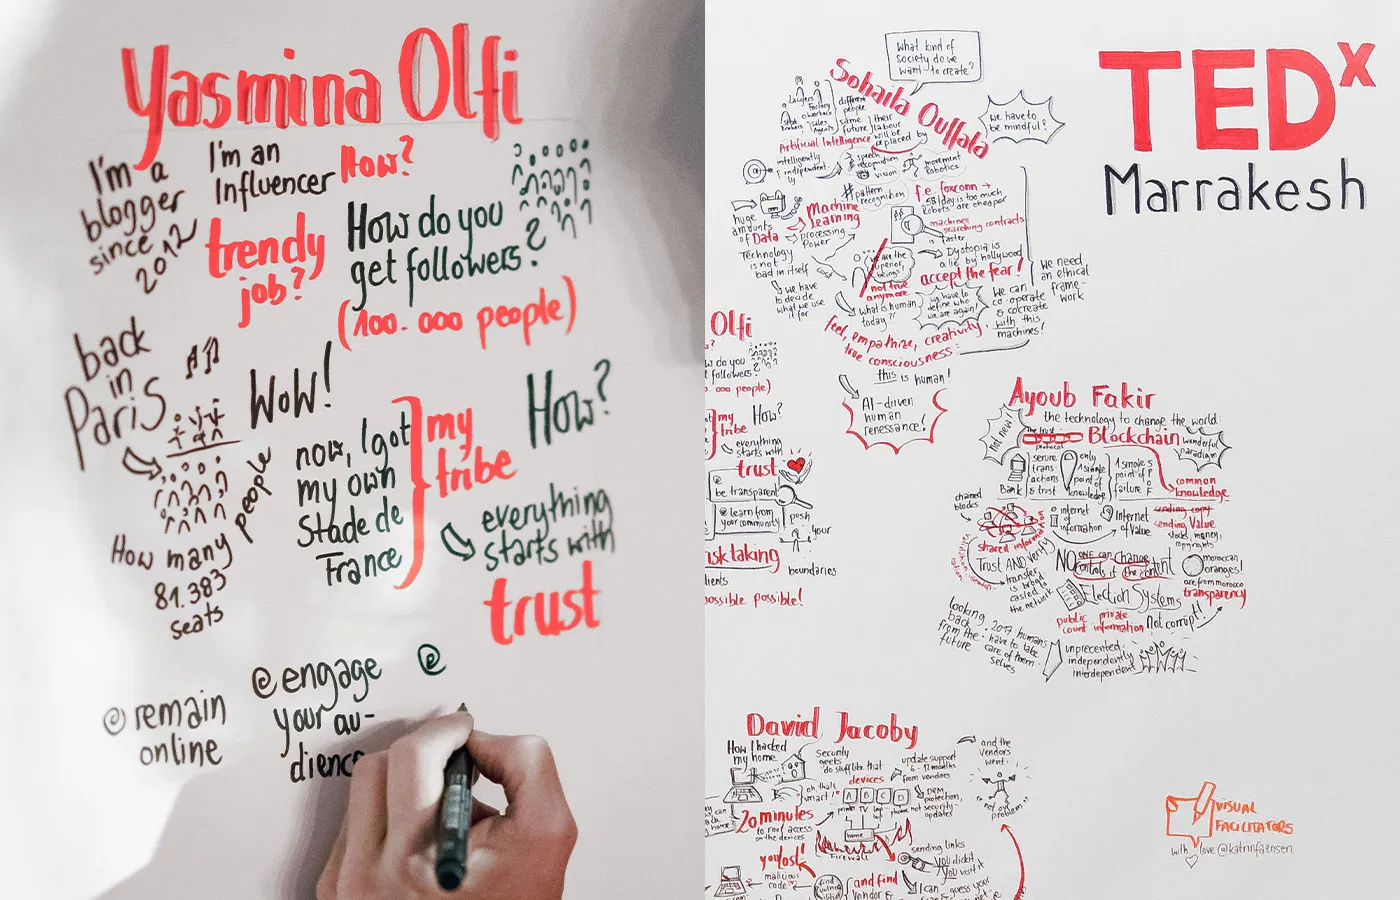 Yasmina Olfi
I'm a
blogger
since
2012
I'm an
Influencer
How?
trendy
job?
How do you
get followers?
(100.000 people)
back
in
Paris
WoW!
How many people
81.383
seats
now, I got
my own
Stade de
France
my
tribe
How?
everything
starts with
trust
@ remain
online
@ engage
your au-
dience
@
TEDx
Marrakesh
What kind of
society do we
want to create?
Sohaila Ouffala
we have to
be mindful?
Lawyers
Factory
workers
Sales
Agents
different
people
same
future
their
labour
will be
replaced by
Artificial Intelligence
intelligently
independent
ly
speech
recognition
vision
movement
Robotics
# pattern
recognition
f.e. foxconn →
5$/day is too much
Robots are cheaper
huge
amounts
of Data
Machine
Learning
processing
Power
machines
searching contracts
is faster
Technology
is not
bad in itself
we have
to decide
what we use
it for
are the
superior
beings?
not true
anymore
Dystopia is
a lie by hollywood
accept the fear!
we have to
define who
we are again!
We can
co-operate
& cocreate
with this
machines!
We need
an ethical
frame-
work
what is human
today?!
feel, empathize, creativity,
true consciousness:
this is human!
AI-driven
human
renessance!
Olfi
How do you
followers?
000 people)
my
tribe
How?
everything
starts with
trust
be transparent
@ learn from
your community
push
your
boundaries
risk taking
possible possible!
Ayoub Fakir
the technology to change the world:
not new!
Blockchain
wonderful
paradigm
Bank
secure
trans-
actions
& trust
only
1 single
point of
knowledge
1 single
point of
failure
common
knowledge
chained
blocks
shared information
internet
of
information
Internet
of Value
sending copy
sending Value
stocks, money,
copyrights
Trust AND Verify
transfer
is broad-
casted to
the network
NO one can change
controls it the content
moroccan
oranges!
are from morocco
transparency
Election Systems
public private
count information
Not corrupt!
looking
back
from the
future
2017 humans
have to take
care of them
selves
unprecented,
independently
interdependent
David Jacoby
How I hacked
my home
Security
geeks
do stuff like that
devices
update support
6-12 months
from vendors
and the
vendors
went:
"not our
problem"
oh that's
smart!
A B C D
printer TV
DRM
protection,
net security-
updates
20 minutes
to root access
on the devices
home
Firewall
you lost!
malicious
code
sending links
you did it
you visit it
and find
vendor &
I can
guess your
VISUAL
FACILITATORS
with love @katrinfaensen